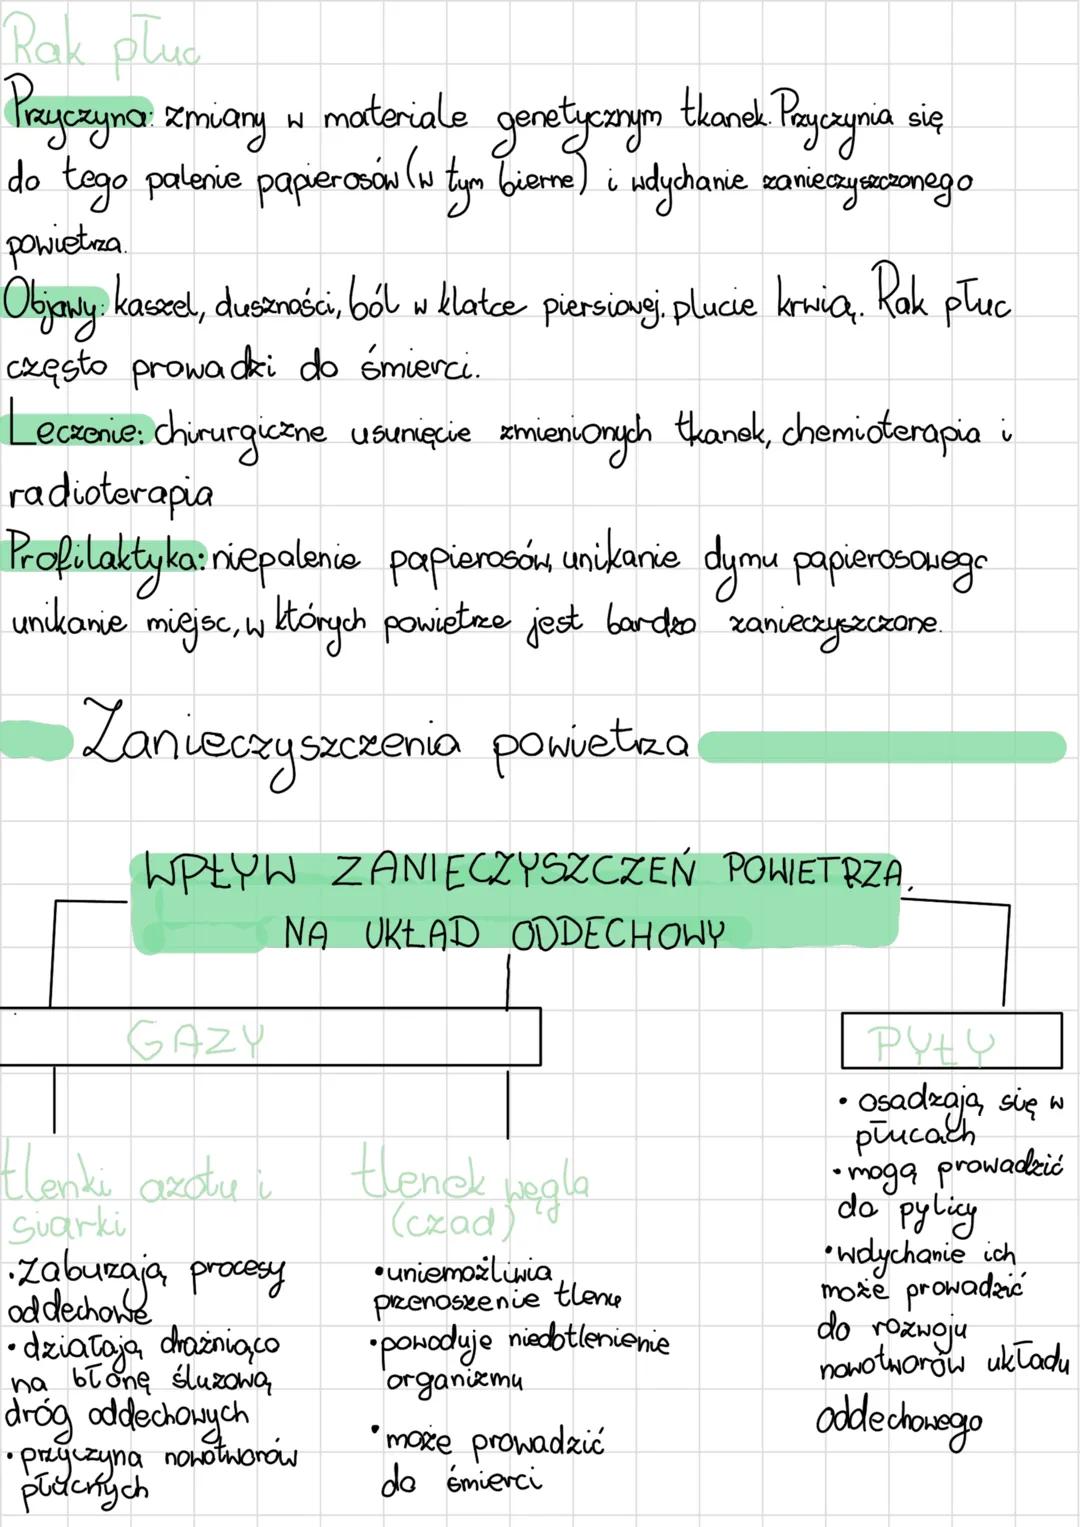 Rak płuc
Przyczyna: zmiany w materiale genetycznym tkanek. Przyczynia się
do tego palenie papierosów (w tym bierne) i wdychanie zanieczyszczonego
powietrza.
Objawy: kaszel, duszności, ból w klatce piersiowej, plucie krwią. Rak płuc
często prowadzi do śmierci.
Leczenie: chirurgiczne usunięcie zmienionych tkanek, chemioterapia i
radioterapia
Profilaktyka: niepalenie papierosów, unikanie dymu papierosowego
unikanie miejsc, w których powietrze jest bardzo zanieczyszczone.
Zanieczyszczenia powietrza
WPŁYW ZANIECZYSZCZEŃ POWIETRZA
NA UKŁAD ODDECHOWY
GAZY
tlenki azotu i
siarki
• Zaburzają procesy
oddechowe
• działają drażniąco
na błonę śluzową
dróg oddechowych
• przyczyna nowotworów
płucnych
tlenek węgla
(czad)
• uniemożliwia
przenoszenie tlenu
• powoduje niedotlenienie
organizmu
• może prowadzić
do śmierci
PYŁY
• osadzają się w
płucach
• mogą prowadzić
do pylicy
• wdychanie ich
może prowadzić
do rozwoju
nowotworów układu
oddechowego